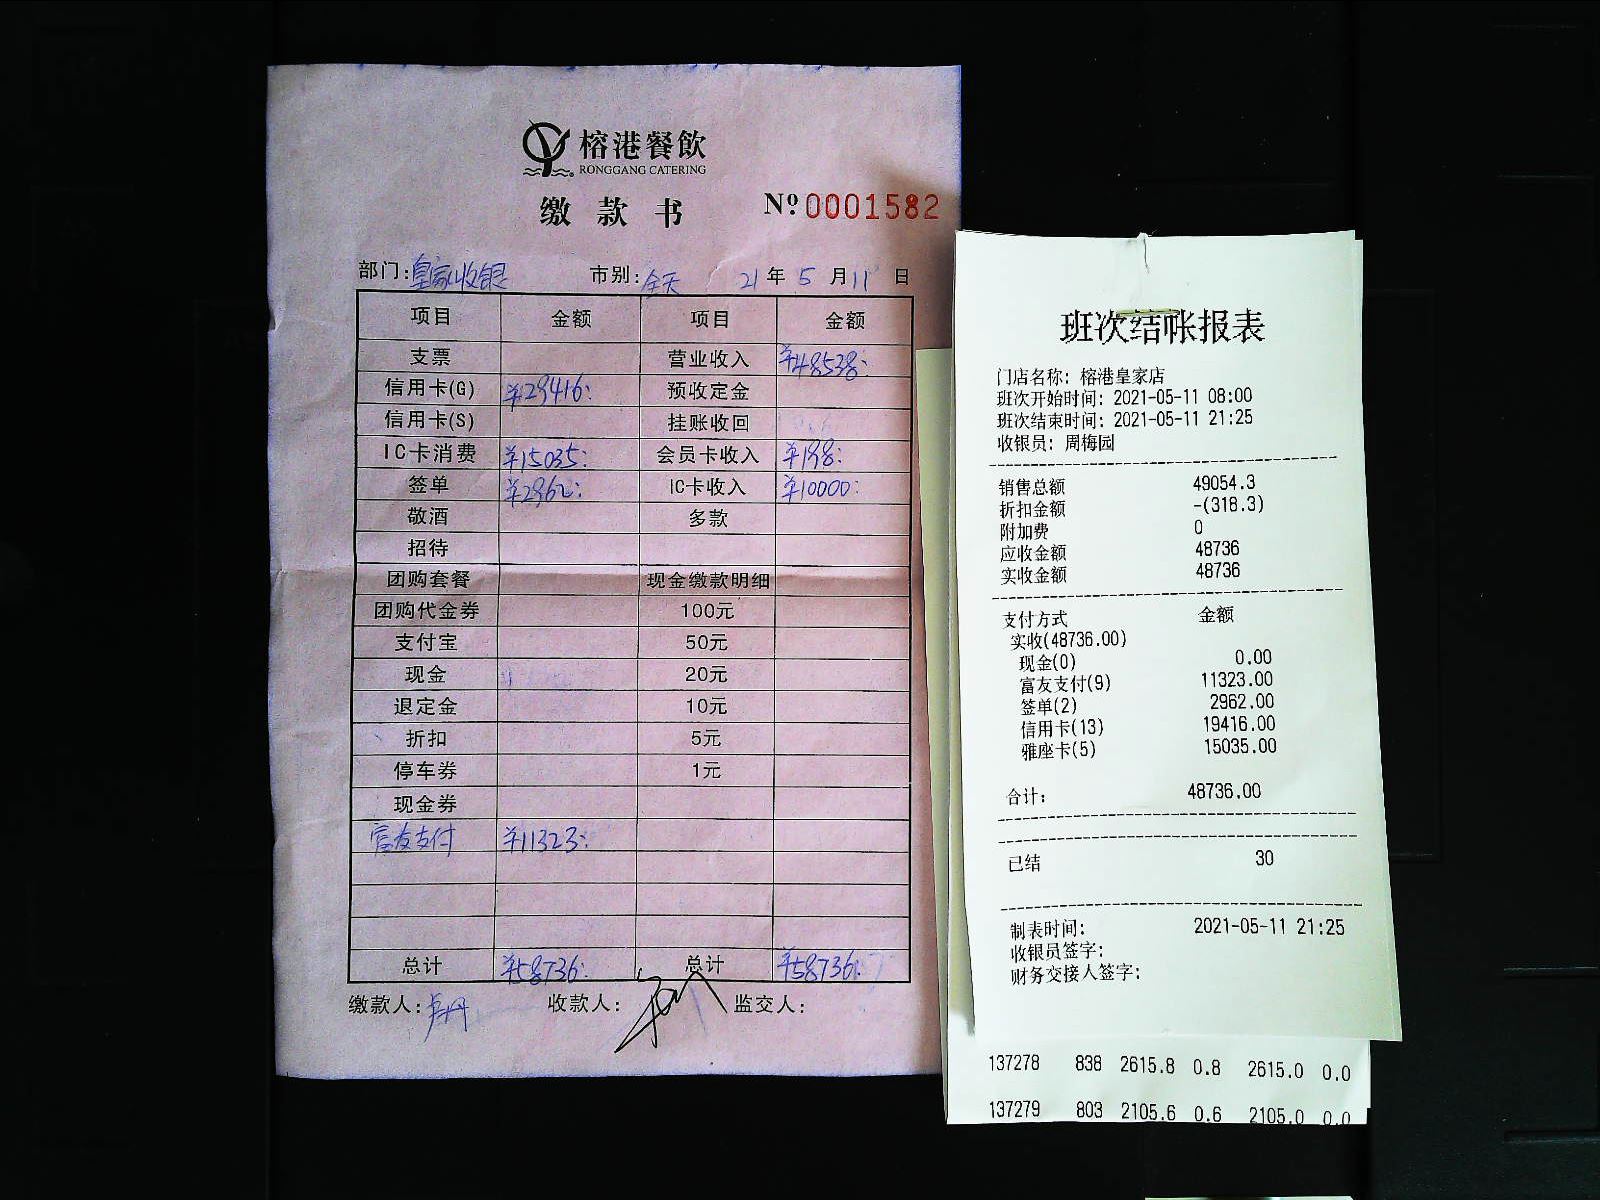 榕港餐飲
RONGGANG CATERING
缴款书
Nº 0001582
部门:皇家收银 市别:全天 21年5月11日
项目 金额 项目 金额
支票 营业收入 ¥48538:
信用卡(G) ¥29416: 预收定金
信用卡(S) 挂账收回
IC卡消费 ¥15035: 会员卡收入 ¥198:
签单 ¥2962: IC卡收入 ¥10000:
敬酒 多款
招待
团购套餐 现金缴款明细
团购代金券 100元
支付宝 50元
现金 20元
退定金 10元
折扣 5元
停车券 1元
现金券
富友支付 ¥11323:
总计 ¥58736: 总计 ¥58736:
缴款人:卢丹 收款人: 监交人:
班次结帐报表
门店名称: 榕港皇家店
班次开始时间: 2021-05-11 08:00
班次结束时间: 2021-05-11 21:25
收银员: 周梅园
销售总额 49054.3
折扣金额 -(318.3)
附加费 0
应收金额 48736
实收金额 48736
支付方式 金额
实收(48736.00)
现金(0) 0.00
富友支付(9) 11323.00
签单(2) 2962.00
信用卡(13) 19416.00
雅座卡(5) 15035.00
合计: 48736.00
已结 30
制表时间: 2021-05-11 21:25
收银员签字:
财务交接人签字:
137278 838 2615.8 0.8 2615.0 0.0
137279 803 2105.6 0.6 2105.0 0.0